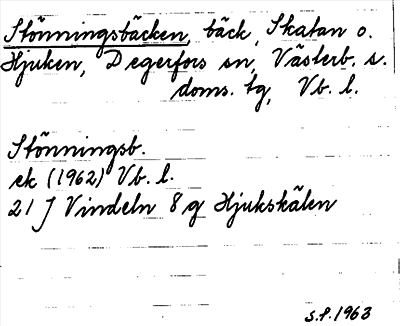 Stönningsbäcken, bäck, Skatan o.
Hjuken, Degerfors sn, Västerb. s.
doms. tg, Vb. l.
Stönningsb.
ek (1962) Vb. l.
21 J Vindeln 8 g Hjukskälen
S.P. 1963